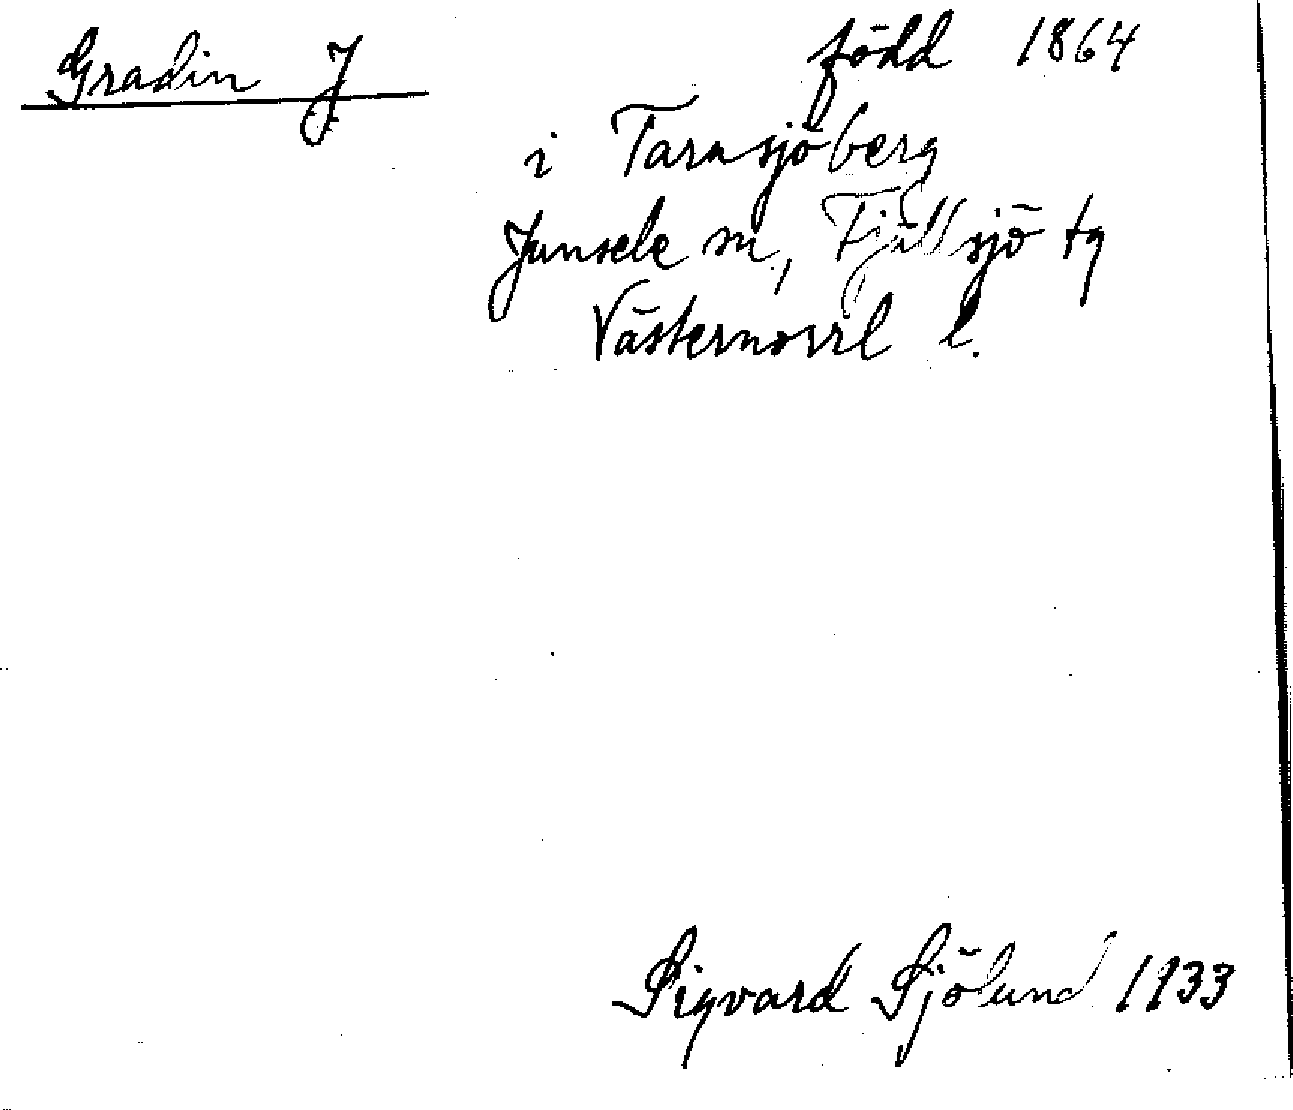 Gradin J född 1864
i Tarasjöberg
Junsele sn, Fjällsjö tg
Västernorrl l.
Sigvard Sjölund 1933